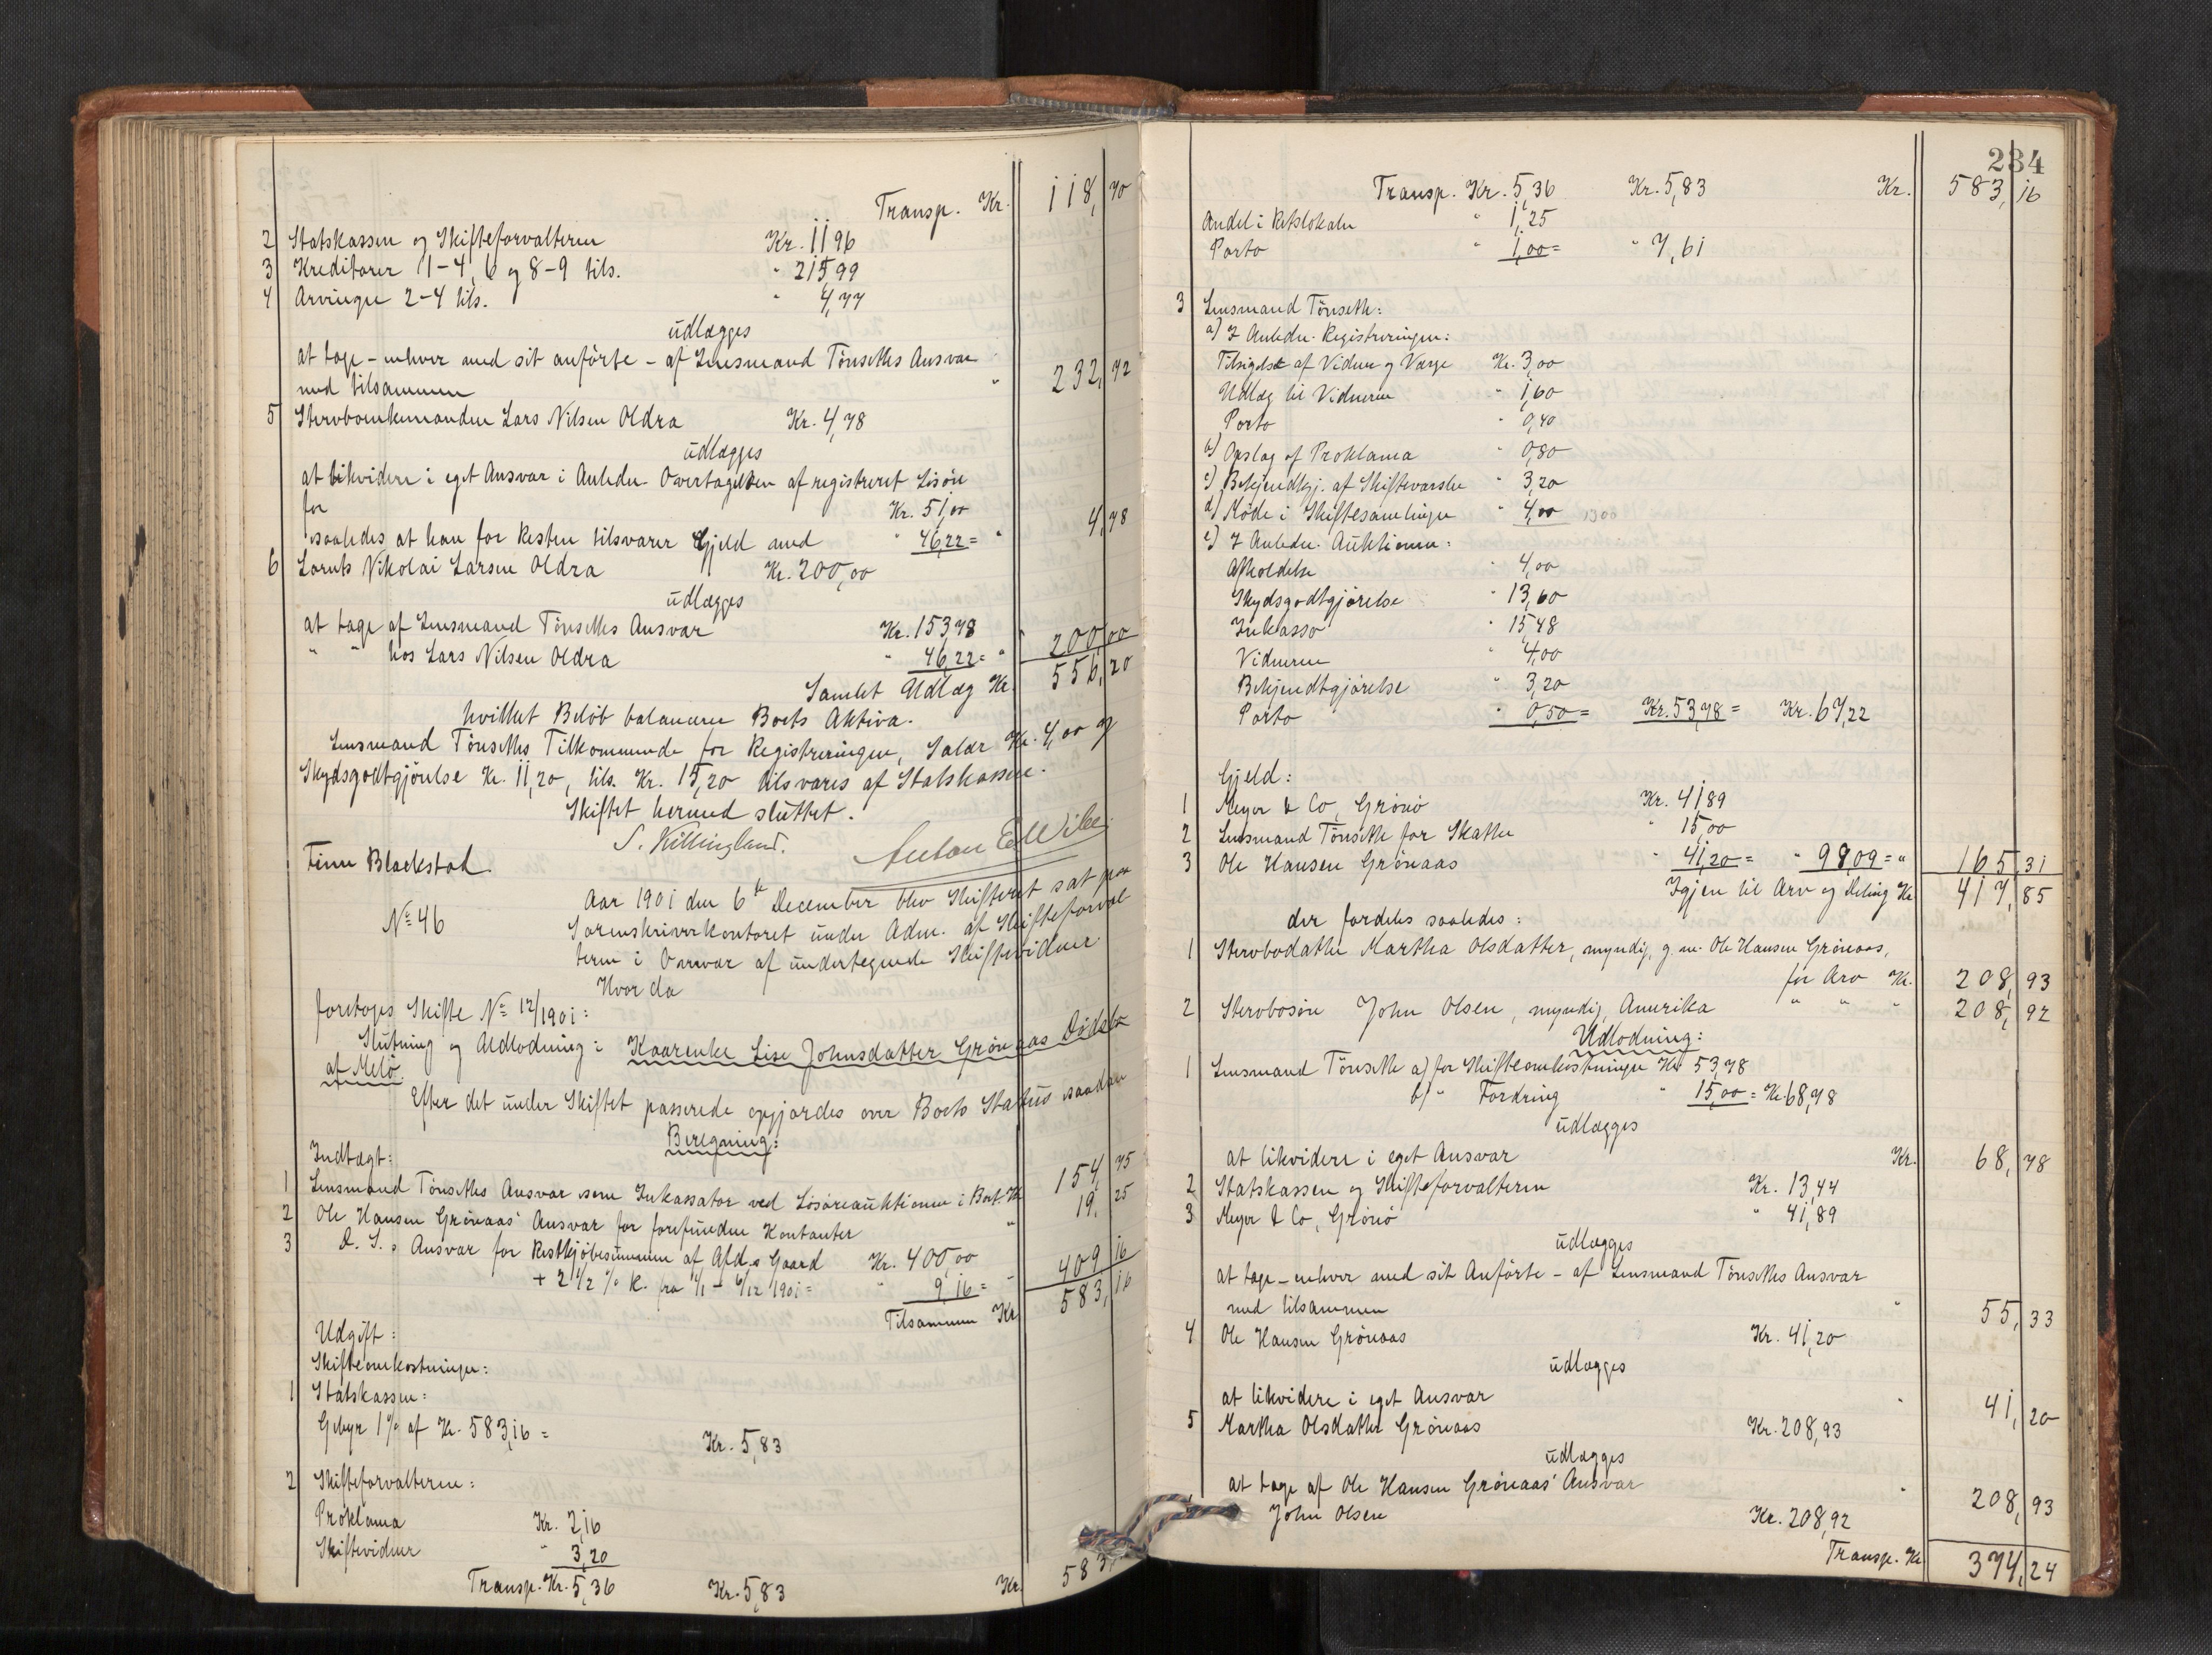 Transp. Kr. 118,70
2 Statskassen og Skifteforvalteren Kr. 11,96
3 Kreditorer 1-4, 6 og 8-9 tils. " 215,99
4 Arvingne 2-4 tils. " 4,77
udlægges
at tage - enhver med sit anførte - af Lensmand Tønseths Ansvar
med tilsammen " 232,72
5 Stervboenkemanden Lars Nilsen Oldra Kr. 4,78
udlægges
at likvidere i eget Ansvar i Anledn. Overtagelsen af registreret Løsøre
for Kr. 51,00
saaledes at han for Resten tilsvarer Gjeld med " 46,22 = " 4,78
6 Lornts Nikolai Larsen Oldra Kr. 200,00
udlægges
at tage af Lensmand Tønseths Ansvar Kr. 153,78
" " hos Lars Nilsen Oldra " 46,22 = " 200,00
Samlet Udlæg Kr. 556,20
hvilket Beløb balancerer Boets Aktiva.
Lensmand Tønseths Tilkommende for Registreringen, Salær Kr. 4,00 og
Skydsgodtgjørelse Kr. 11,20, tils. Kr. 15,20 tilsvares af Statskassen.
Skiftet hermed sluttet.
S. Killingland. Anton E Wiley
Finn Blackstad.
Aar 1901 den 6te December blev Skifteret sat paa
No 46 Sorenskriverkontoret under Adm. af Skifteforval-
teren i Overvær af undertegnede Skiftevidner.
Hvor da
foretoges Skifte No 12/1901:
Slutning og Udlodning i Kaarenke Lise Johnsdatter Grønaas Dødsbo
af Melø.
Efter det under Skiftet passerede opgjordes over Boets Status saadan
Beregning:
Indtægt:
1 Lensmand Tønseths Ansvar som Inkassator ved Løsøreauktionen i Boet Kr. 154,75
2 Ole Hansen Grønaas' Ansvar for forefundne Kontanter " 19,25
3 D. S. s Ansvar for Restkjøbesummen af Afd.s Gaard Kr. 400,00
+ 2 1/2 % R. fra 1/1 - 6/12 1901 = " 9,16 = " 409,16
Tilsammen Kr. 583,16
Udgift:
Skifteomkostninger:
1 Statskassen:
Gebyr 1% af Kr. 583,16 = Kr. 5,83
2 Skifteforvalteren:
Proklama Kr. 2,16
Skiftevidner " 3,20
Transp. Kr. 5,36 Kr. 5,83 Kr. 583,
234
Transp. Kr. 5,36 Kr. 5,83 Kr. 583,16
Andel i Retslokaler " 1,25
Porto " 1,00 = " 7,61
3 Lensmand Tønseth:
a) I Anledn. Registreringen:
Tilsigelse af Vidner og Værge Kr. 3,00
Udlæg til Vidnerne " 1,60
Porto " 0,40
b) Opslag af Proklama " 0,80
c) Bekjendtgj. af Skiftevarsler " 3,20
d) Møde i Skiftesamlinger " 4,00 1300
e) I Anledn. Auktionen:
Afholdelse " 4,00
Skydsgodtgjørelse " 13,60
Inkasso " 15,48
Vidnerne " 4,00
Bekjendtgjørelse " 3,20
Porto " 0,50 = Kr. 53,78 = Kr. 67,22
Gjeld:
1 Meyer & Co, Grønø Kr. 41,89
2 Lensmand Tønseth for Skatter " 15,00
3 Ole Hansen Grønaas " 41,20 = " 98,09 = " 165,31
Igjen til Arv og Deling Kr. 417,85
der fordeles saaledes:
1 Stervbodatter Martha Olsdatter, myndig, g. m. Ole Hansen Grønaas,
for Arv Kr. 208,93
2 Stervbosøn John Olsen, myndig, Amerika " " " 208,92
Udlodning:
1 Lensmand Tønseth a) for Skifteomkostninger Kr. 53,78
b) " Fordring " 15,00 = Kr. 68,78
udlægges
at likvidere i eget Ansvar Kr. 68,78
2 Statskassen og Skifteforvalteren Kr. 13,44
3 Meyer & Co, Grønø " 41,89
udlægges
at tage - enhver med sit Anførte - af Lensmand Tønseths Ansvar
med tilsammen " 55,33
4 Ole Hansen Grønaas Kr. 41,20
udlægges
at likvidere i eget Ansvar " 41,20
5 Martha Olsdatter Grønaas Kr. 208,93
udlægges
at tage af Ole Hansen Grønaas' Ansvar " 208,93
John Olsen Kr. 208,92
Transp. Kr. 374,24